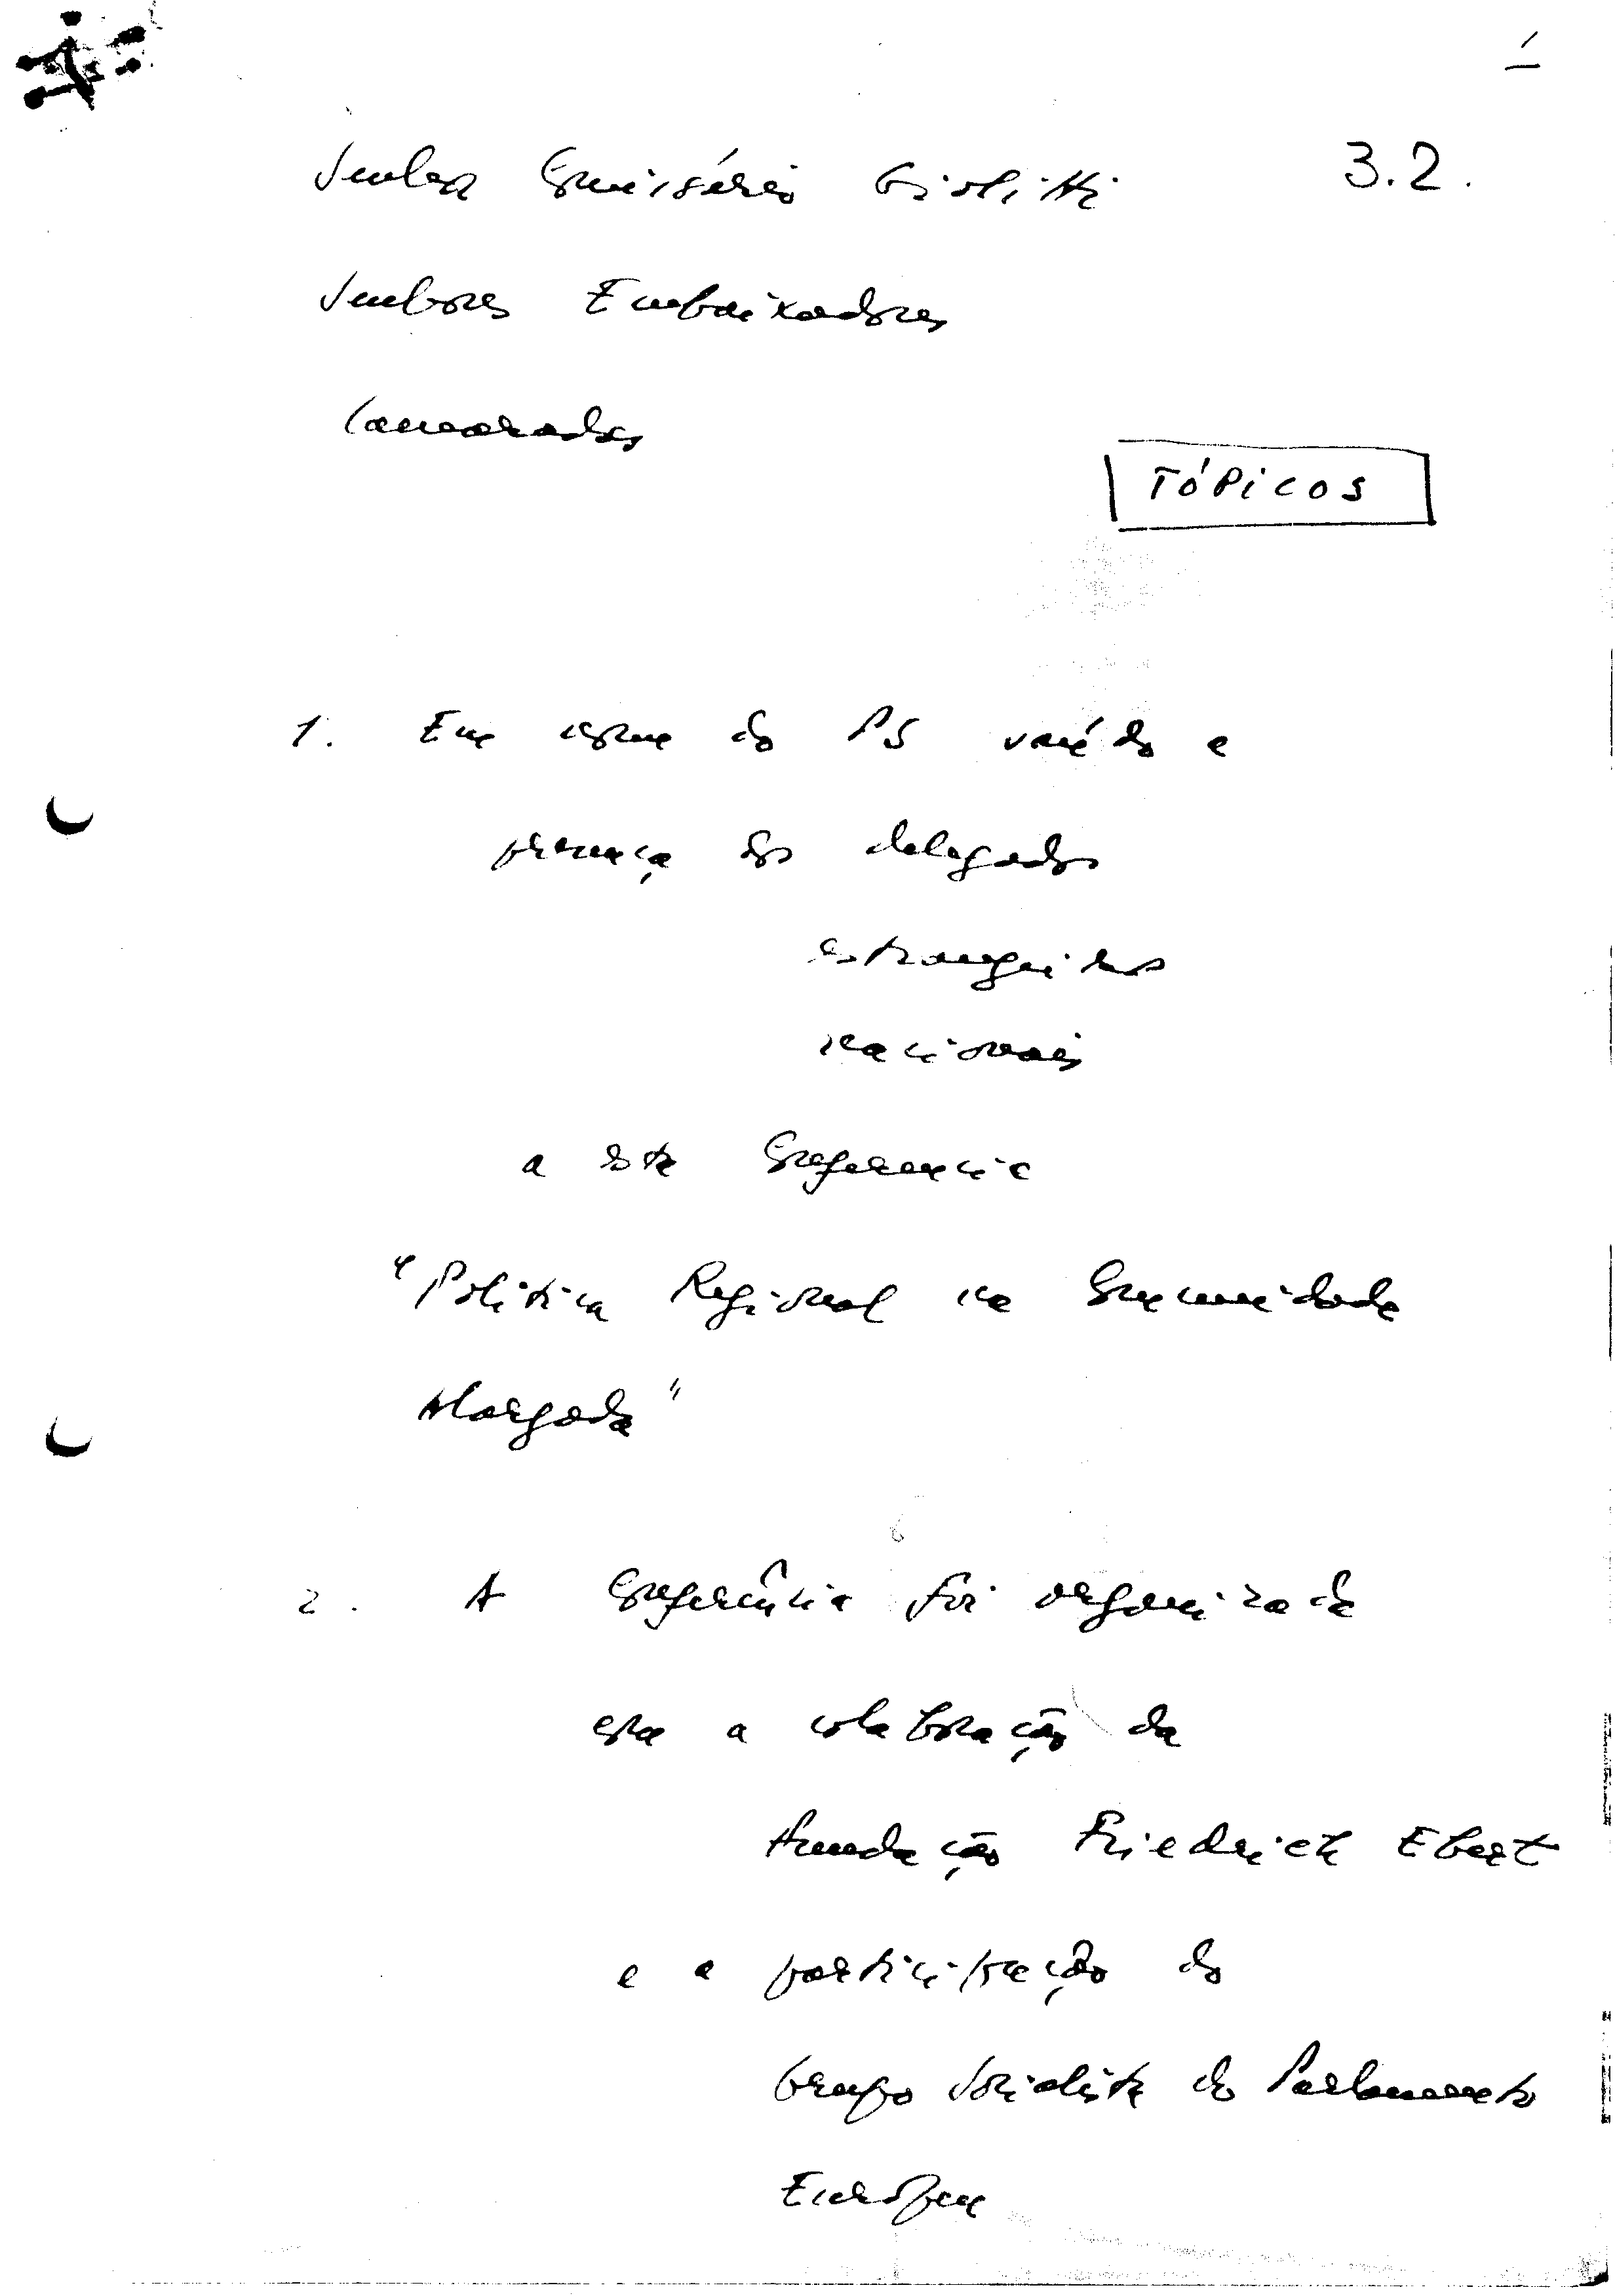 1
Senhor Comissário Giolitti 3.2.
Senhores Embaixadores
Camaradas
TÓPICOS
1. Em nome do PS saúdo a
presença dos delegados
estrangeiros
nacionais
a esta Conferencia
"Politica Regional na Comunidade
Alargada"
2. A Conferência foi organizada
com a colaboração da
Fundação Friedrich Ebert
e a participação do
Grupo Socialista do Parlamento
Europeu